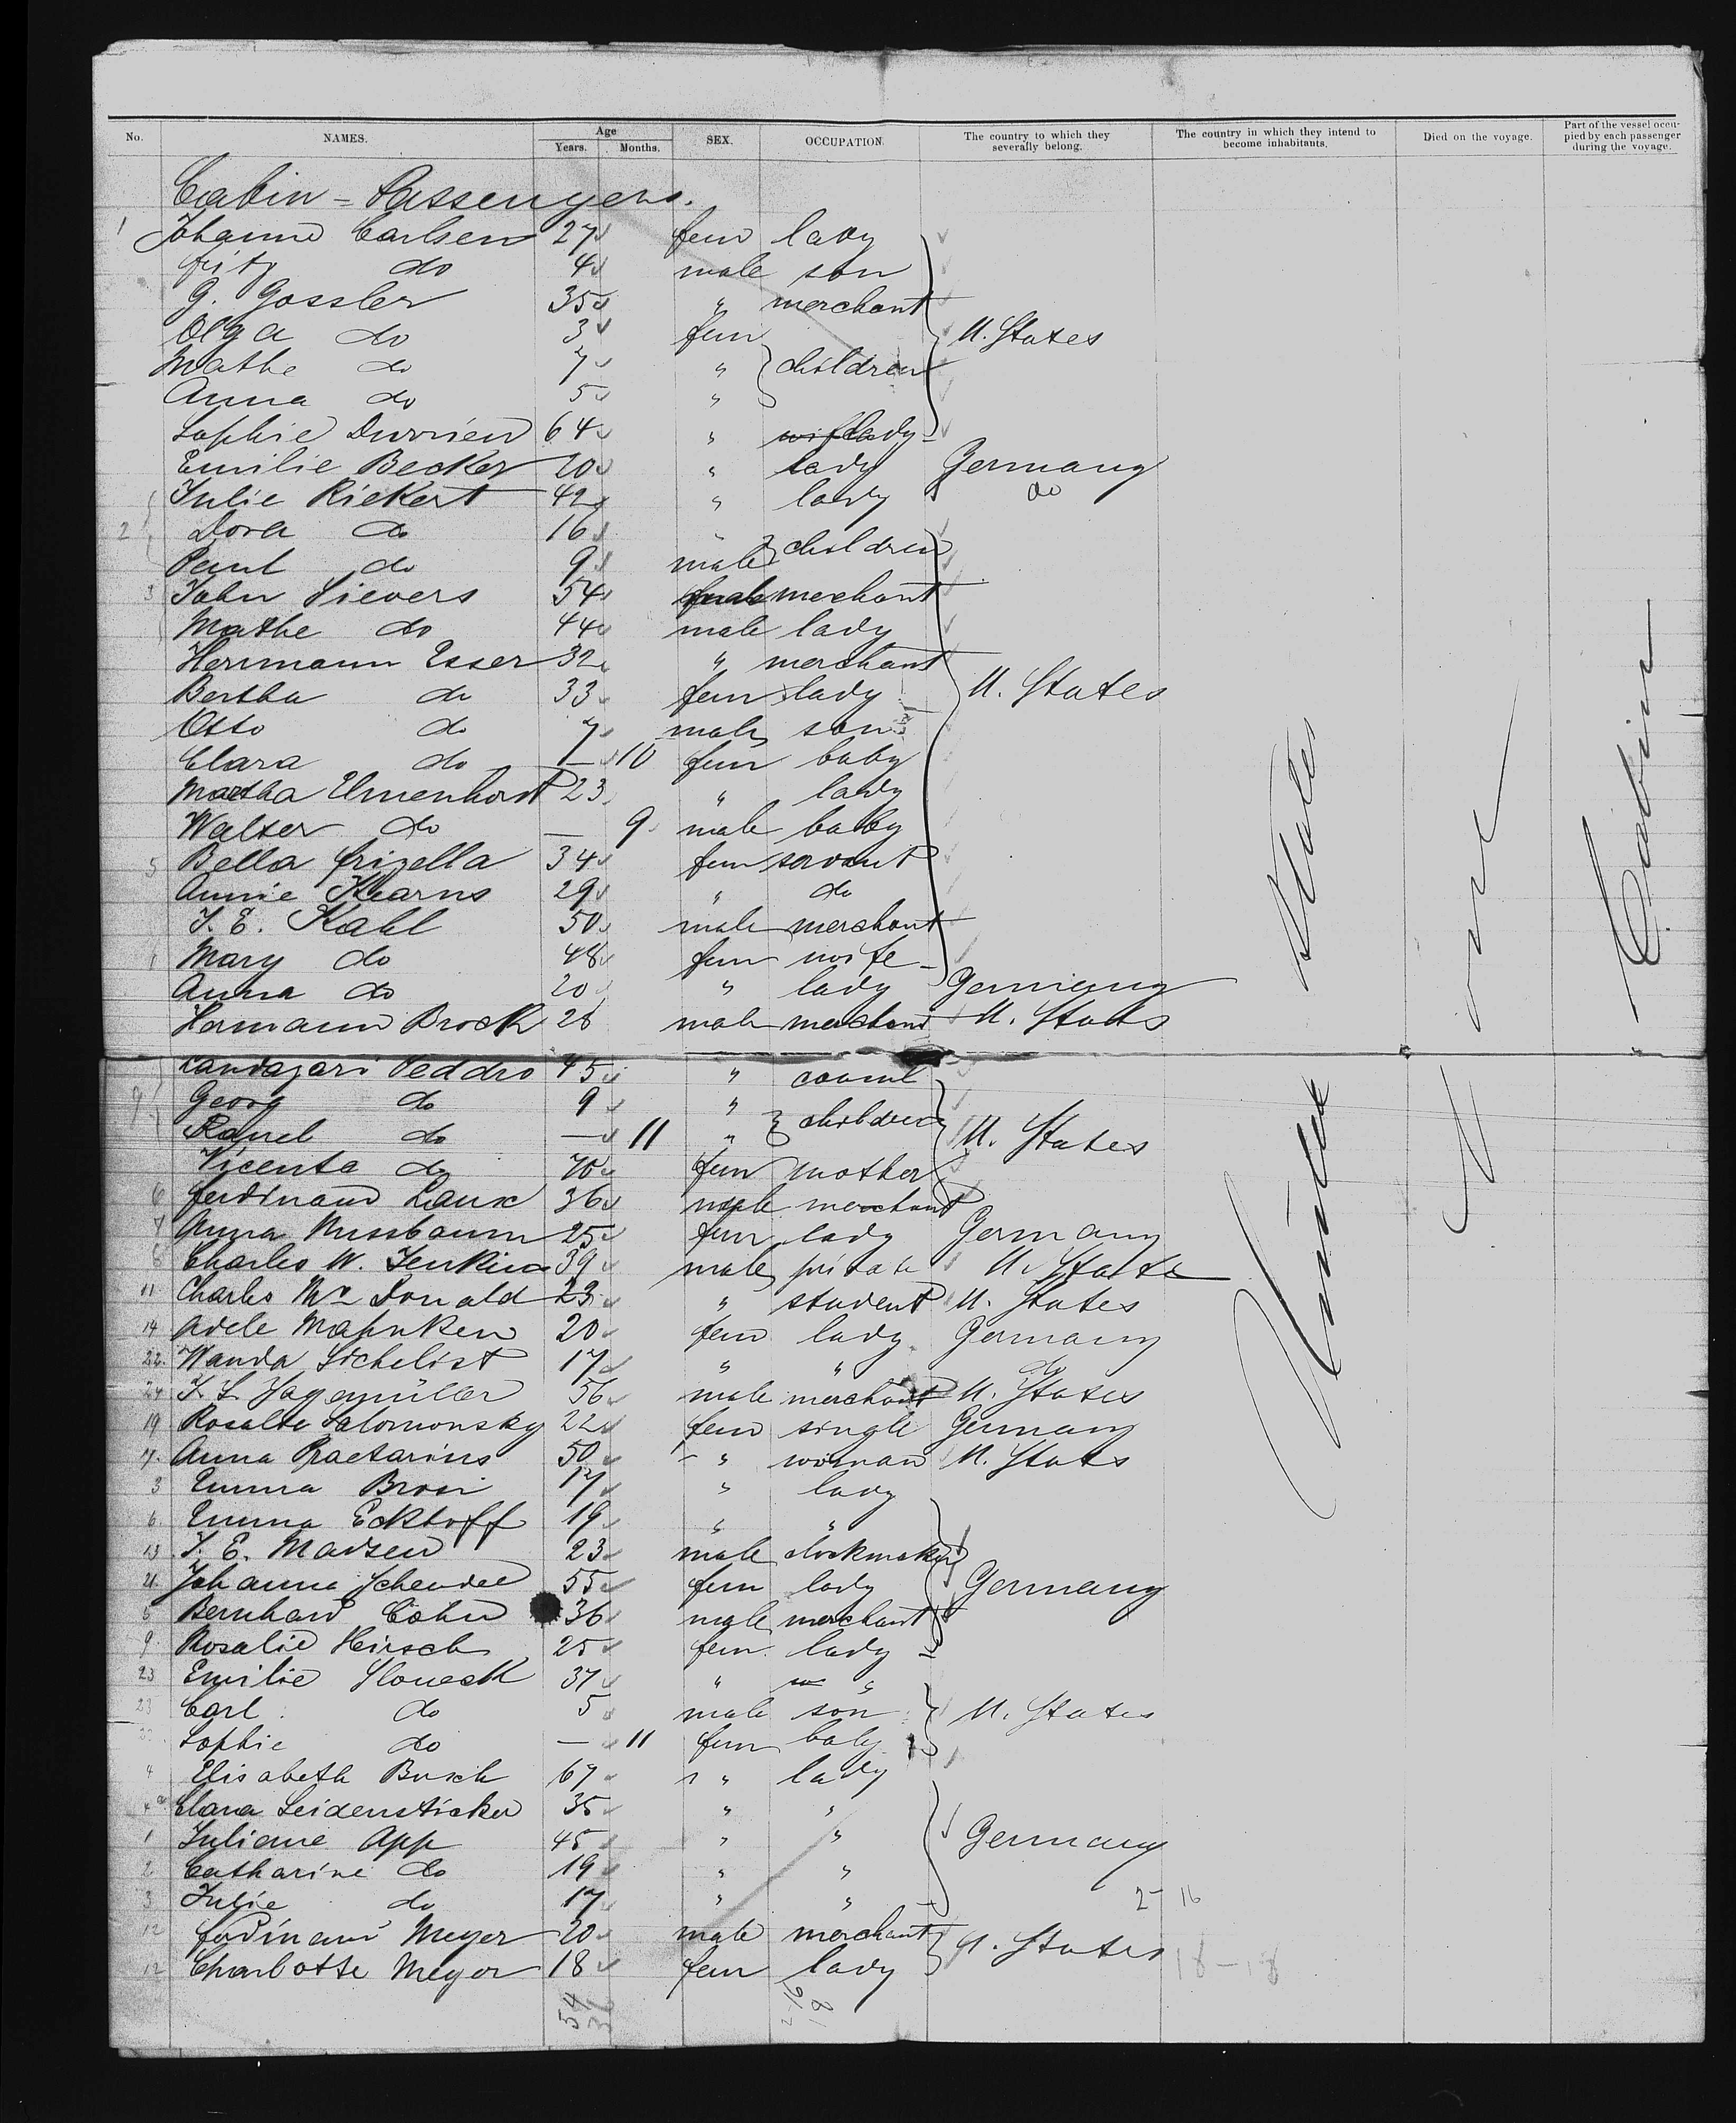 No. NAMES. Age Years. Months. SEX. OCCUPATION. The country to which they severally belong. The country in which they intend to become inhabitants. Died on the voyage. Part of the vessel occupied by each passenger during the voyage.
Cabin = Passengers.
1 Johanne Carlsen 27 fem lady
fritz do 4 male son
G. Gossler 35 " merchant
Olga do 3 fem U. States
Mathe do 7 " children
Anna do 5 "
Sophie Durrieu 64 " wife lady
Emilie Becker 20 " lady Germany
Julie Riekert 42 " lady do
2 Dora do 16 " children
Paul do 9 male
3 John Sievers 54 merchant
Mathe do 44 male lady
Herrmann Esser 32 " merchant
Bertha do 33 fem lady U. States
Otto do 7 male son
Clara do — 10 fem baby
Martha Elmenhorst 23 " lady
Walter do — 9 male baby
5 Bella frizella 34 fem servant
Annie Kearns 29 " do
J. E. Kahl 50 male merchant
Mary do 48 fem wife
Anna do 20 " lady Germany
Hermann Brock 28 male merchant U. States
Veddro 45 " consul
Georg do 9 " children
do — 11 " U. States
Vicenta do 70 fem mother
6 ferdinand Laux 36 male merchant
7 Anna Nussbaum 25 fem lady Germany
8 Charles W. Jenkins 39 male private U. States
11 Charles Mc Donald 23 " student U. States
14 Adele Mahnken 20 fem lady Germany
22. Wanda Sichelist 17 " " do
24 F. L. Hagemüller 56 male merchant U. States
19 Rosalie Salomonsky 22 fem single Germany
7. Anna Praetorius 50 " woman U. States
3 Emma Brosi 17 " lady
6 Emma Eckhoff 19 " "
13 J. E. Madsen 23 male clockmaker
21. Johanna Schendel 55 fem lady Germany
5 Bernhard Cohn 36 male merchant
9. Rosalie Hirsch 25 fem. lady
23 Emilie 37 " "
23 Carl do 5 male son U. States
23 Sophie do — 11 fem baby
4 Elisabeth Busch 67 " lady
Clara Leidensticker 35 " "
1 Juliane App 45 " " Germany
2 Catharine do 19 " "
3 Julie do 17 " " 2- 16
12 ferdinand Meyer 20 male merchant U. States
12 Charlotte Meyer 18 fem lady 18-18
54
United States
Cabin